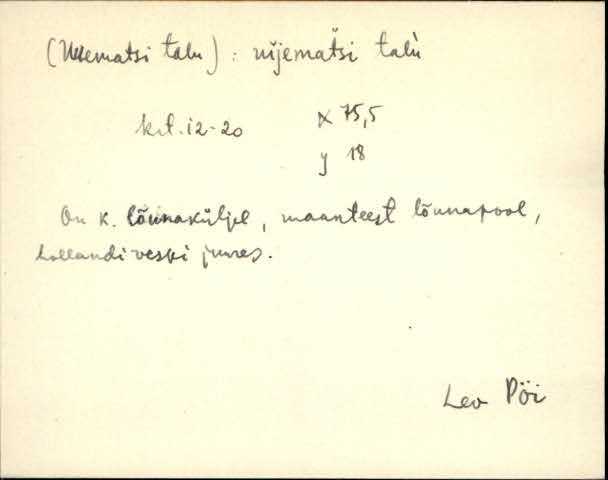 (Uuematsi talu) : uijematši talù
krt. 12-20 x 75,5
y 18
On k. lõunaküljel, maanteest lõunapool,
hollandi veski juures.
Leo Pöi